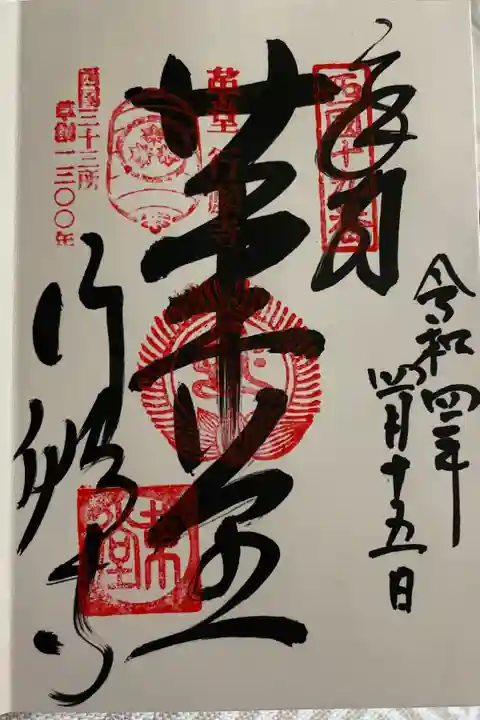 奉拝
西国十九番
令和四年
四月十五日
革堂
革堂 行願寺
行願寺
西国三十三所
草創一三〇〇年
革堂